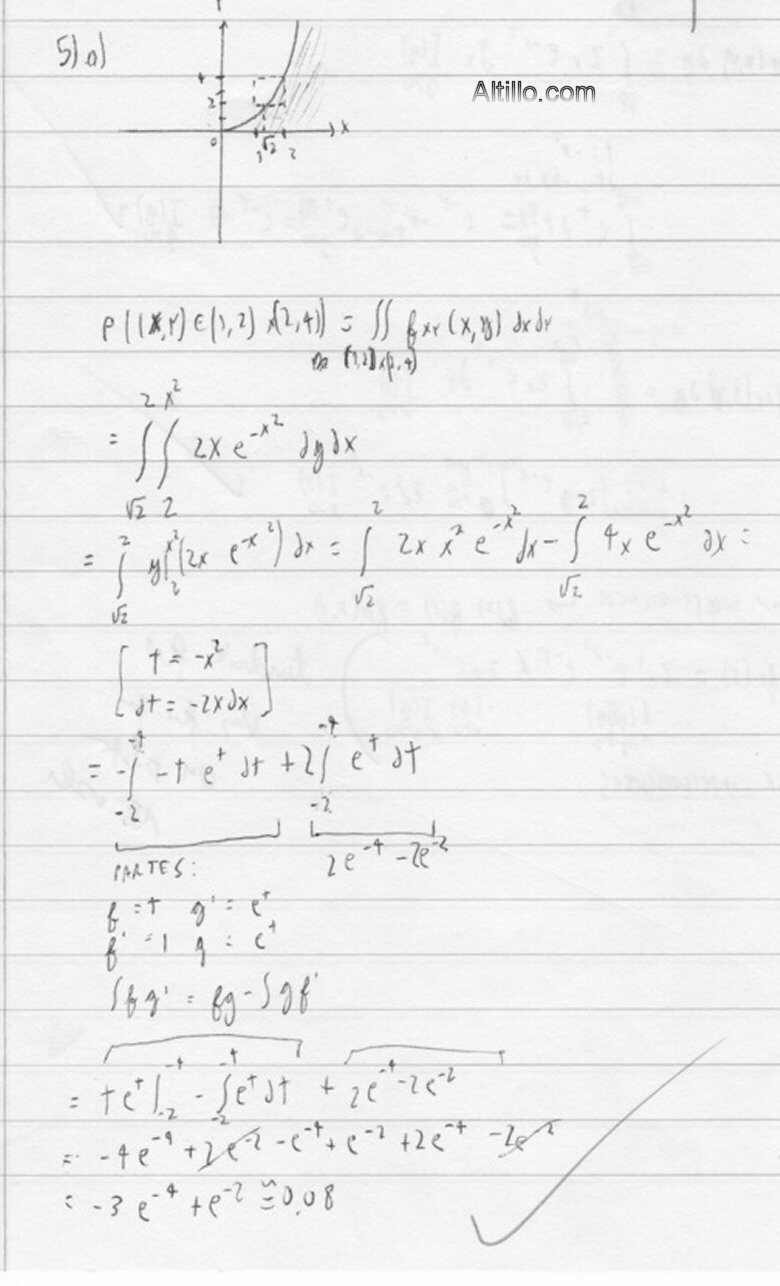 5) a)
Altillo.com
4
2
0 1 √2 2 x
P((X,Y) ∈ (1,2) x (2,4)) = ∬ f_XY (x,y) dx dy
(1,2)x(2,4)
= ∫_{√2}^{2} ∫_{2}^{x²} 2x e^{-x²} dy dx
= ∫_{√2}^{2} y|_{2}^{x²} (2x e^{-x²}) dx = ∫_{√2}^{2} 2x x² e^{-x²} dx - ∫_{√2}^{2} 4x e^{-x²} dx =
[ t = -x²
dt = -2x dx ]
= -∫_{-2}^{-4} -t e^t dt + 2∫_{-2}^{-4} e^t dt
2e^{-4} - 2e^{-2}
PARTES:
f = t g' = e^t
f' = 1 g = e^t
∫fg' = fg - ∫gf'
= te^t|_{-2}^{-4} - ∫_{-2}^{-4} e^t dt + 2e^{-4} - 2e^{-2}
= -4e^{-4} + 2e^{-2} - e^{-4} + e^{-2} + 2e^{-4} - 2e^{-2}
= -3e^{-4} + e^{-2} ≅ 0,08